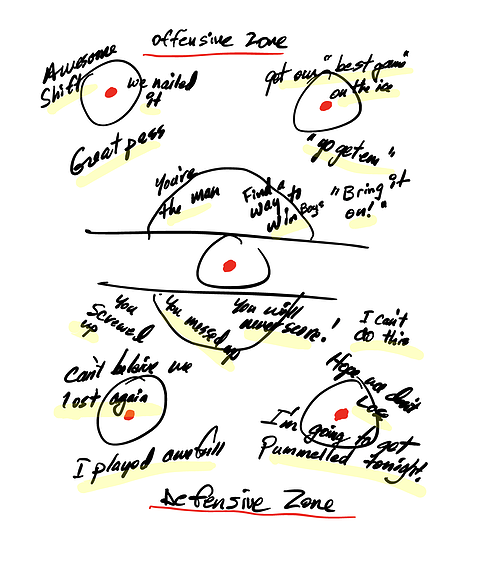 Offensive Zone
Awesome
Shift
we nailed
it
got our "best game"
on the ice
Great pass
"go get em"
You're
the man
Find a
way to
win Boys
"Bring it
on!"
You
Screwed
up
You messed up
You will
never score!
I can't
do this
Can't beleive we
lost again
Hope we don't
Lose
I'm going to get
Pummelled tonight!
I played awfull
Defensive Zone